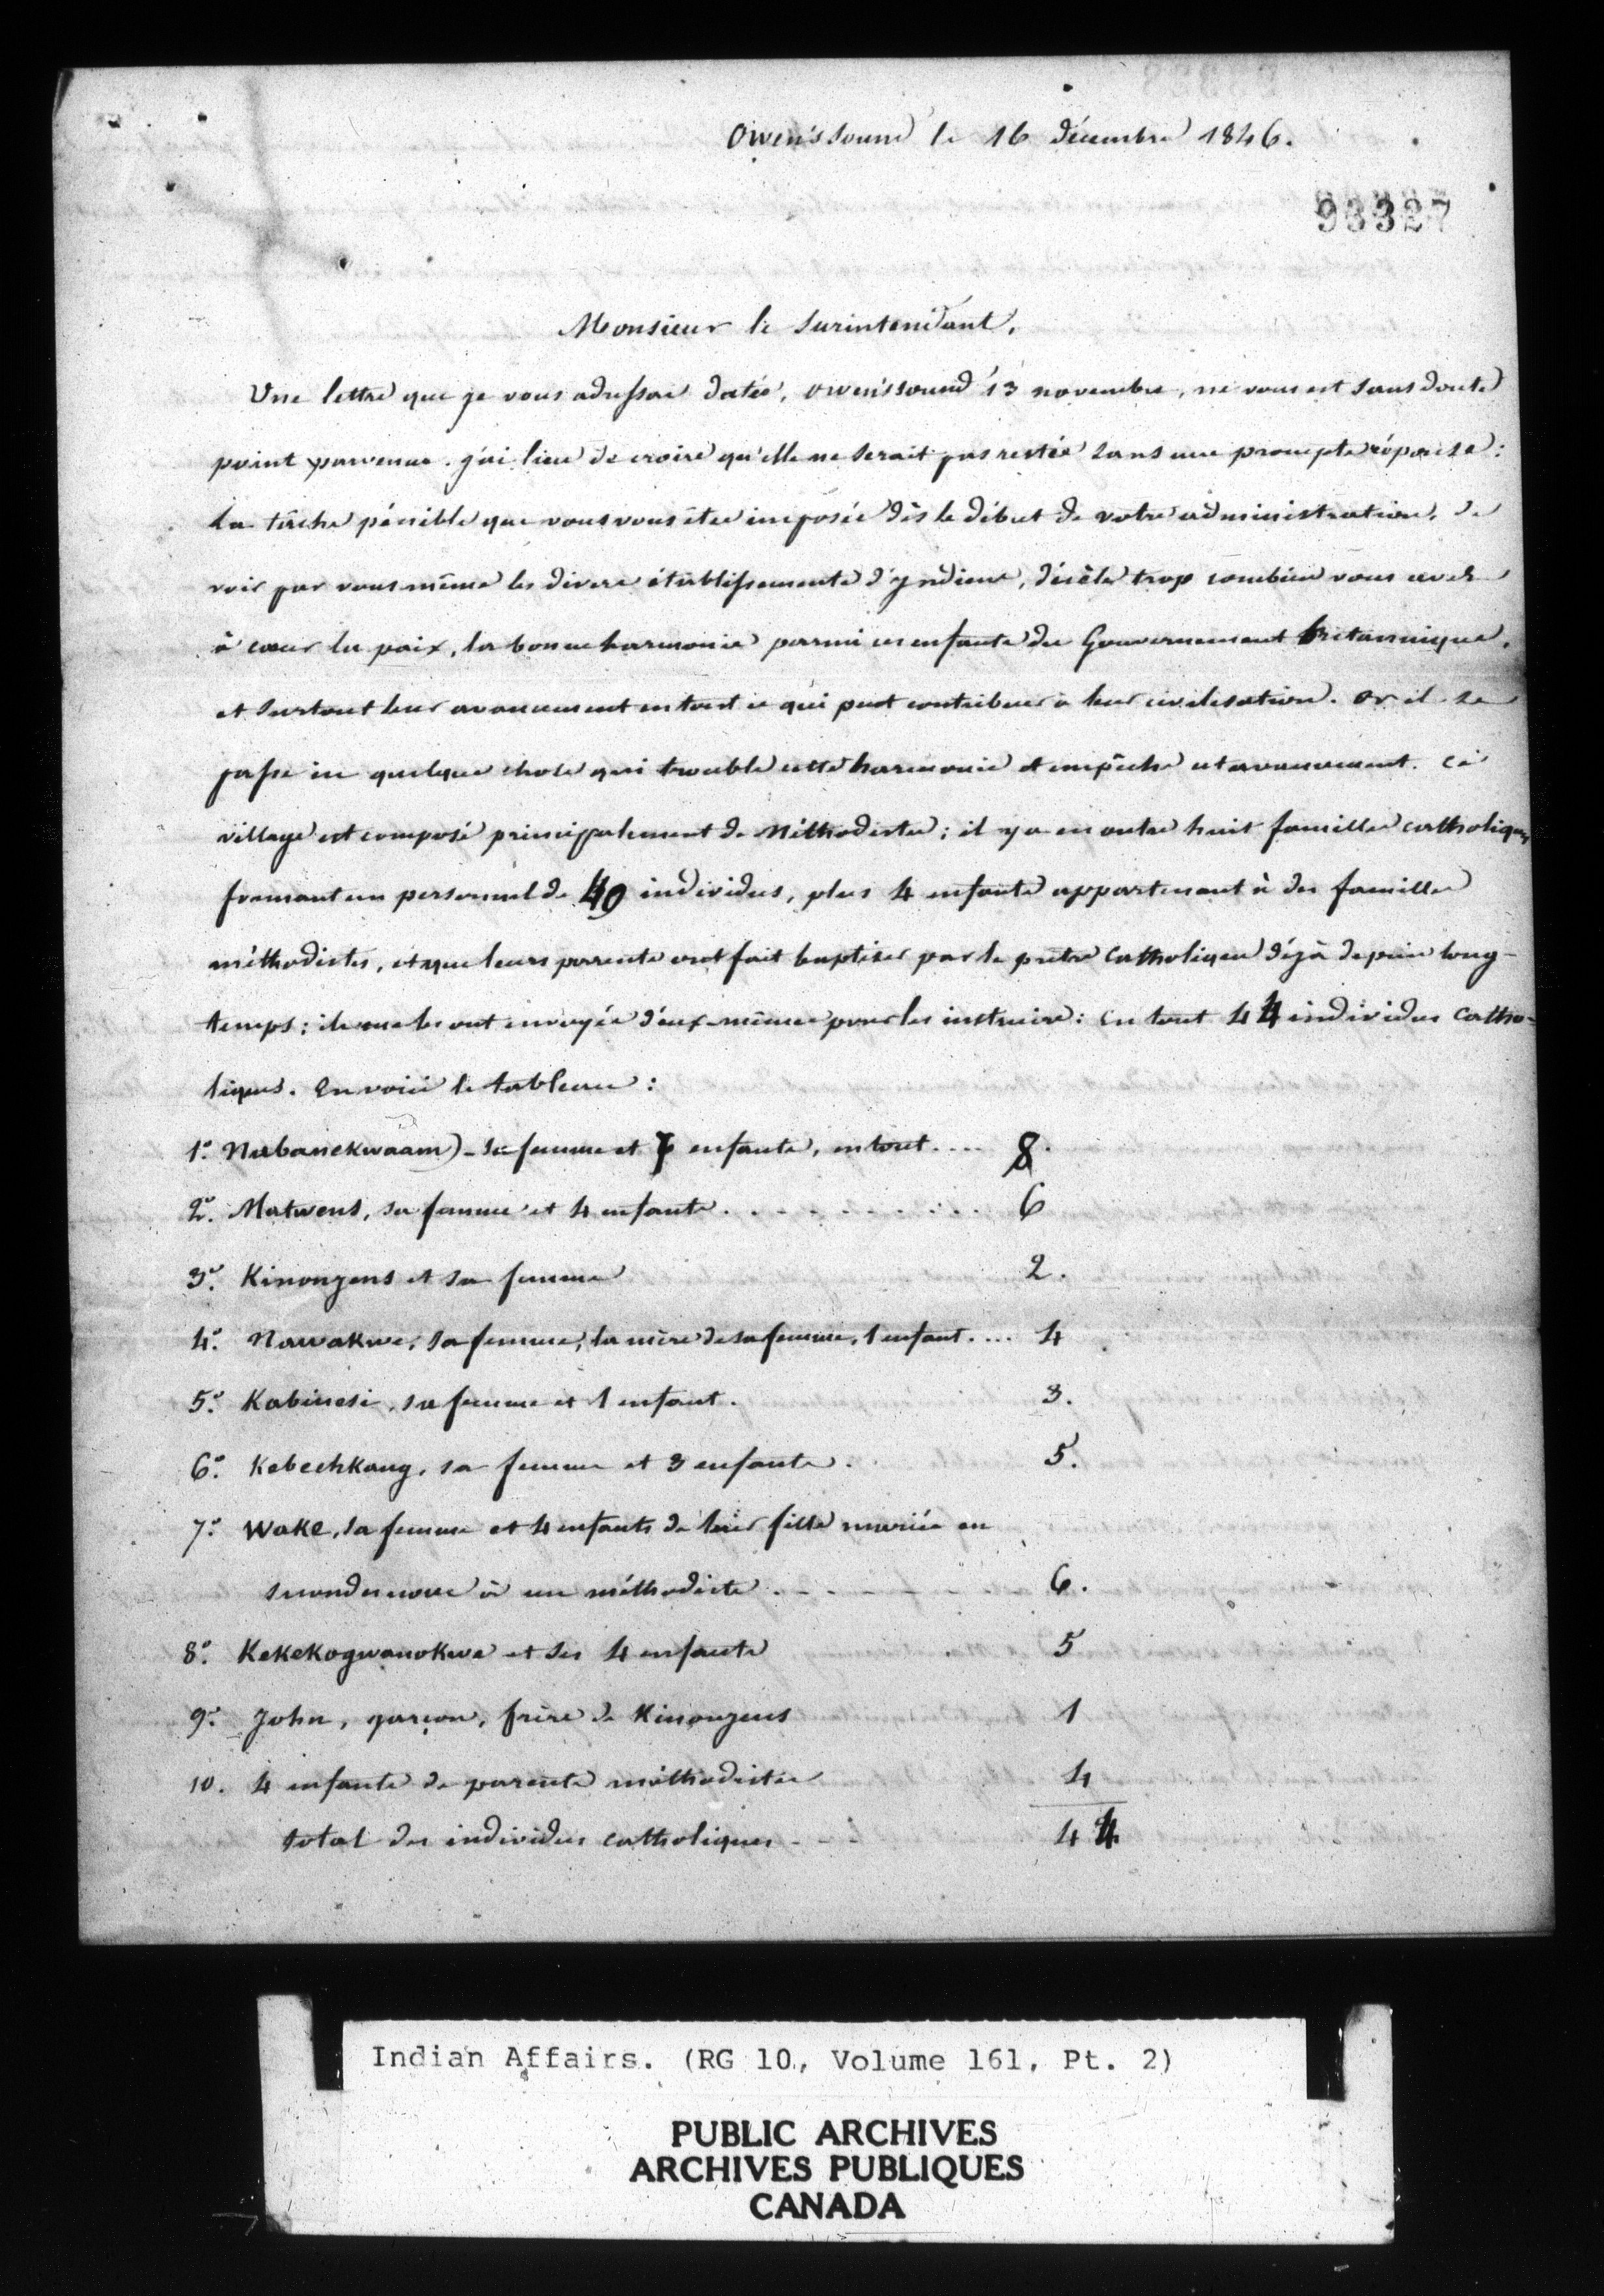 Owen'ssound le 16 décembre 1846.
93327
Monsieur le Surintendant,
Une lettre que je vous adressai datée, owen'ssound 13 novembre, ne vous est sans doute
point parvenue. j'ai lieu de croire qu'elle ne serait pas restée sans une prompte réponse:
La tâche pénible que vous vous êtes imposée dès le début de votre administration, de
voir par vous même les divers établissements d'yndiens, décèle trop combien vous avez
à cœur la paix, la bonne harmonie parmi ces enfants du Gouvernement britannique,
et surtout leur avancement en tout ce qui peut contribuer à leur civilisation. or il se
passe ici quelque chose qui trouble cette harmonie et empêche cet avancement. Ce
village est composé principalement de Méthodistes; il y a en outre huit familles catholiques
formant un personnel de 40 individus, plus 4 enfants appartenant à des familles
méthodistes, et que leurs parents ont fait baptiser par le prêtre Catholique déjà depuis long-
temps; ils me les ont envoyés d'eux-mêmes pour les instruire: en tout 44 individus Catho-
liques. En voici le tableau:
1° Nabanekwaam - sa femme et 6 enfants, en tout.... 8.
2° Matwens, sa femme et 4 enfants. . . . . . . . . . 6
3° Kinonzens et sa femme 2.
4° Nawakwe, sa femme, la mère de sa femme, 1 enfant.... 4
5° Kabinesi, sa femme et 1 enfant. 3.
6° Kebechkang, sa femme et 3 enfants. 5.
7° Wake, sa femme et 4 enfants de leur fille mariée en
secondes noces à un méthodiste. - - - - - - - 6.
8° Kekekogwanokwe et ses 4 enfants 5
9° John, garçon, frère de Kinonzens 1
10. 4 enfants de parents méthodistes 4
total des individus catholiques - - - 44
Indian Affairs. (RG 10, Volume 161, Pt. 2)
PUBLIC ARCHIVES
ARCHIVES PUBLIQUES
CANADA